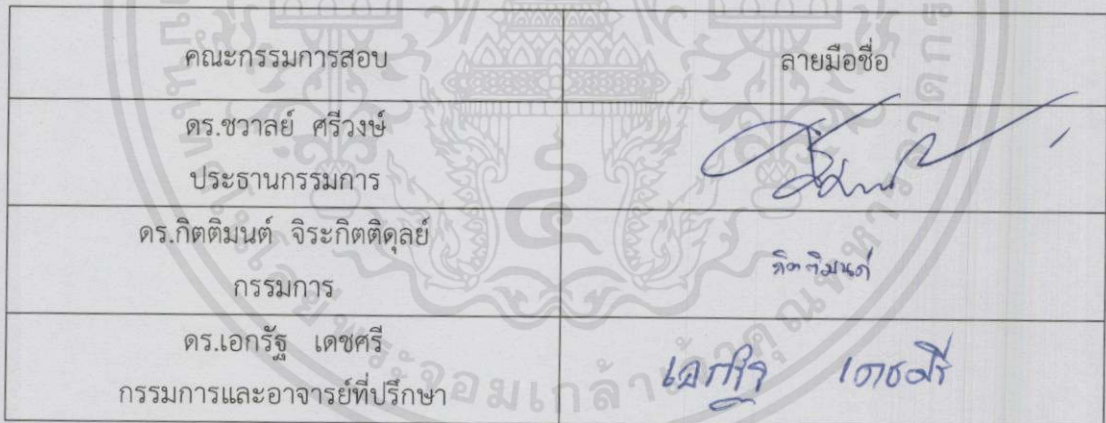 คณะกรรมการสอบ ลายมือชื่อ
ดร.ชวาลย์ ศรีวงษ์
ประธานกรรมการ
ดร.กิตติมนต์ จิระกิตติดุลย์
กรรมการ
กิตติมนต์
ดร.เอกรัฐ เดชศรี
กรรมการและอาจารย์ที่ปรึกษา
เอกรัฐ เดชศรี
พระจอมเกล้าเจ้าคุณทหาร